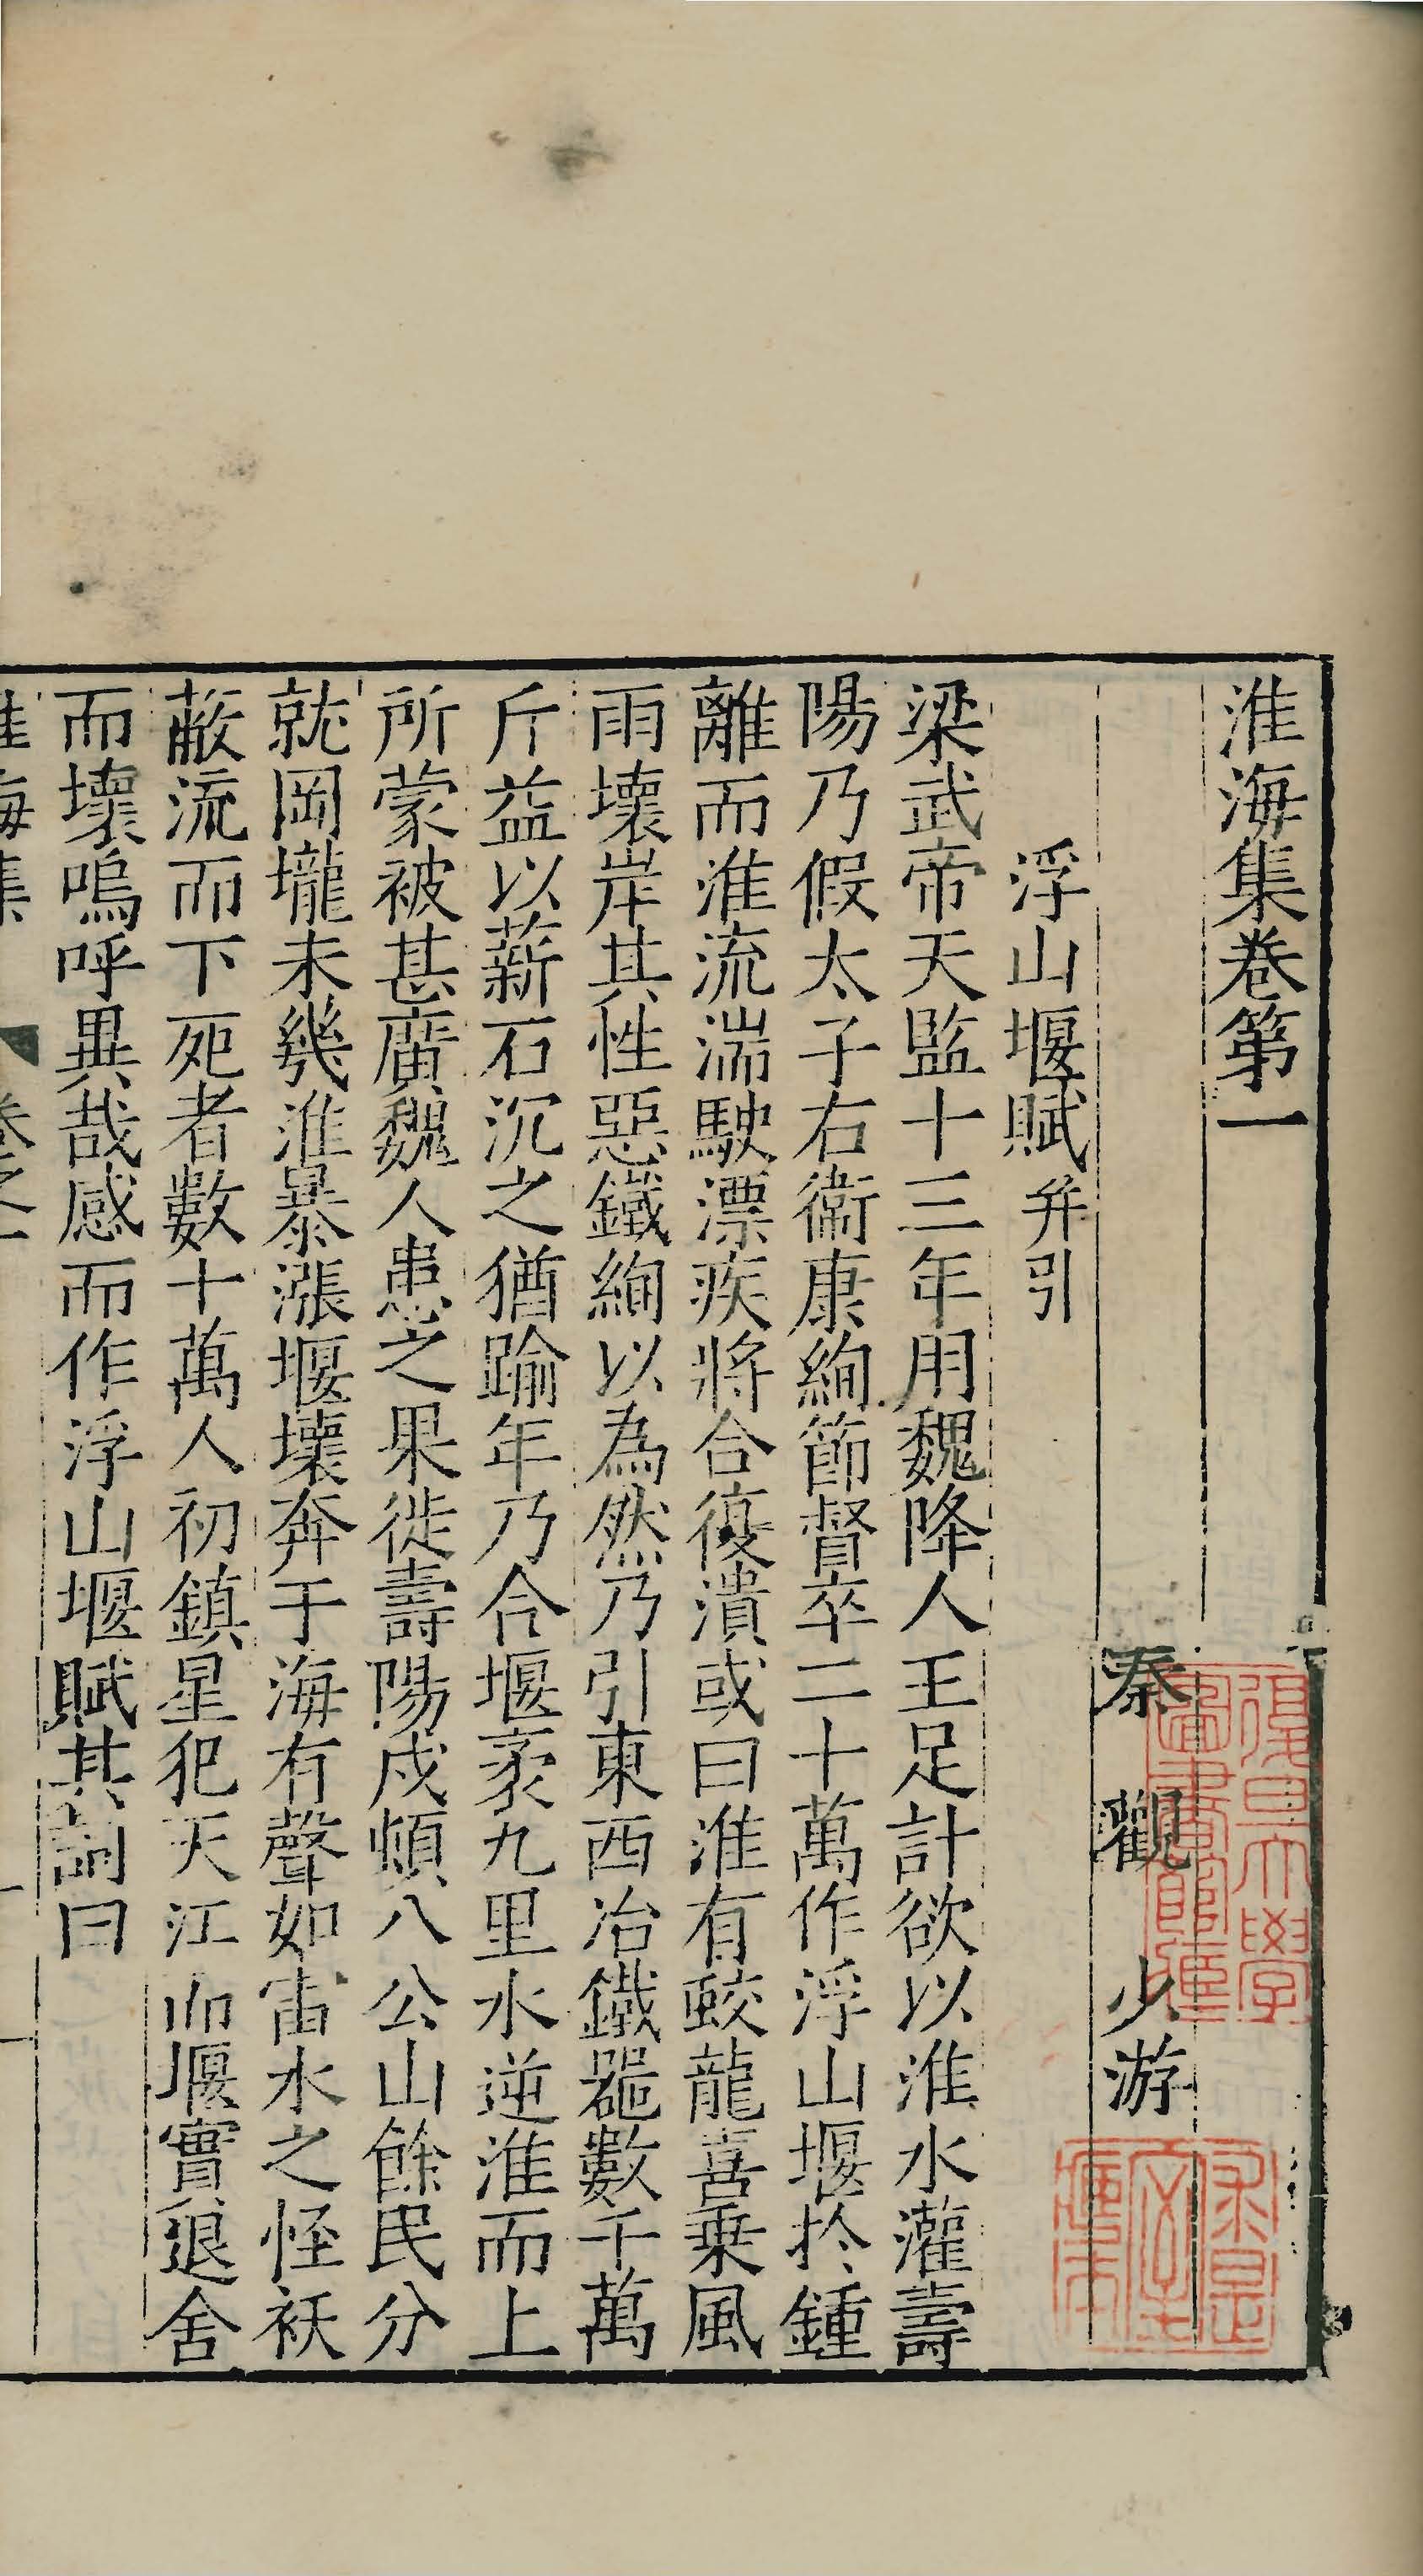 淮海集卷第一
秦觀 少游
浮山堰賦并引
梁武帝天監十三年用魏降人王足計欲以淮水灌壽
陽乃假太子右衞康絢節督卒二十萬作浮山堰於鍾
離而淮流湍駛漂疾將合復潰或曰淮有蛟龍喜乗風
雨壞岸其性惡鐵絢以為然乃引東西冶鐵噐數千萬
斤益以薪石沉之猶踰年乃合堰袤九里水逆淮而上
所蒙被甚廣魏人患之果徙壽陽戍頓八公山餘民分
就岡壠未幾淮暴漲堰壞奔于海有聲如雷水之怪祅
蔽流而下死者數十萬人初鎮星犯天江而堰實退舍
而壞嗚呼異哉感而作浮山堰賦其詞曰
淮海集 卷之一 一
復旦大學
圖書館藏